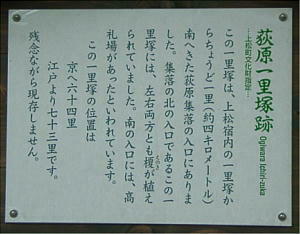 荻原一里塚跡 Ogiwara Ichiri-zuka
…上松町文化財指定…
この一里塚は、上松宿内の一里塚か
らちょうど一里(約四キロメートル)
南へきた荻原集落の入口にありま
した。集落の北の入口であるこの一
里塚には、左右両方とも榎が植え
えのき
られていました。南の入口には、高
札場があったといわれています。
この一里塚の位置は
京へ六十四里
江戸より七十三里です。
残念ながら現存しません。